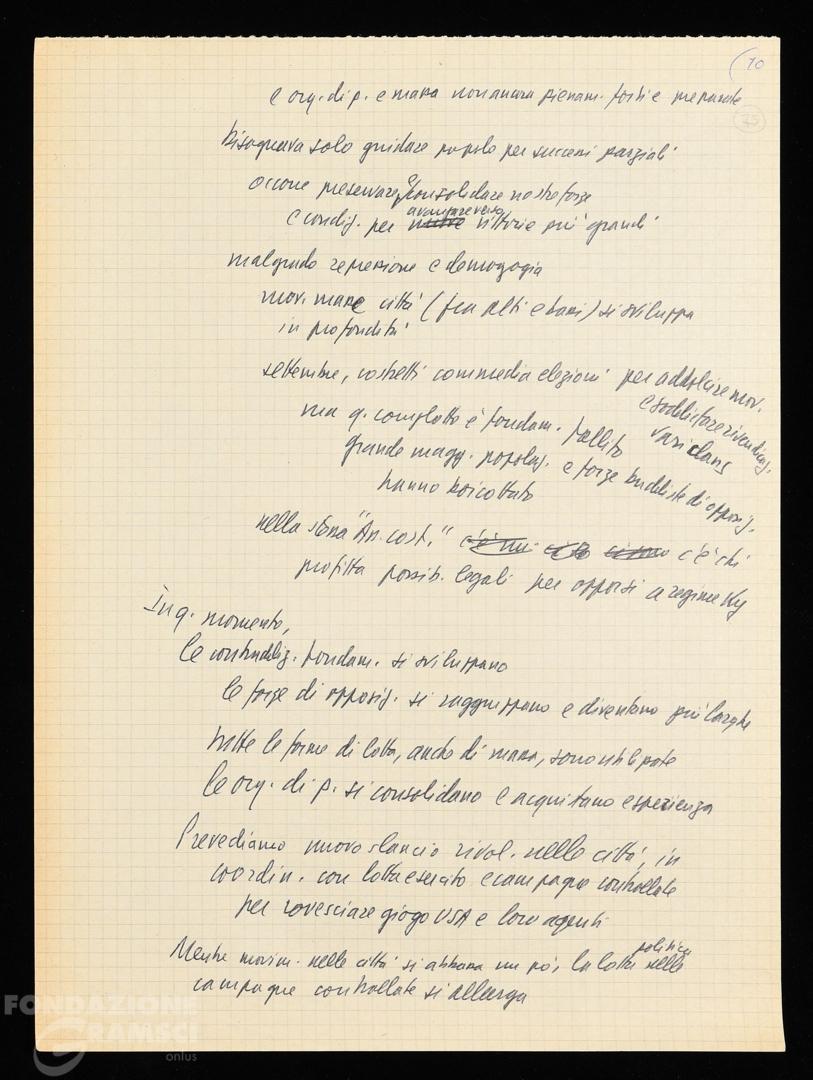 10
25
e org. di p. e massa non ancora pienam. forti e preparate
bisognava solo guidare popolo per successi parziali
occorre preservare e consolidare nostre forze
avanzare verso
e condiz. per vittorie più grandi
malgrado repressione e demagogia
mov. masse città (fra alti e bassi) si sviluppa
in profondità
settembre, costretti commedia elezioni per addolcire mov.
e soddisfare rivendicaz.
vari clans
ma q. complotto è fondam. fallito
grande magg. popolaz. e forze buddiste di opposiz.
hanno boicottato
nella stessa "An. cost." c'è chi
profitta possib. legali per opporsi a regime Ky
In q. momento,
le contraddiz. fondam. si sviluppano
le forze di opposiz. si raggruppano e diventano più larghe
tutte le forme di lotta, anche di massa, sono utilizzate
le org. di p. si consolidano e acquistano esperienza
Prevediamo nuovo slancio rivol. nelle città, in
coordin. con lotta esercito e campagne controllate
per rovesciare giogo USA e loro agenti
Mentre movim. nelle città si abbassa un pò, la lotta politica nelle
campagne controllate si allarga
FONDAZIONE
GRAMSCI
onlus